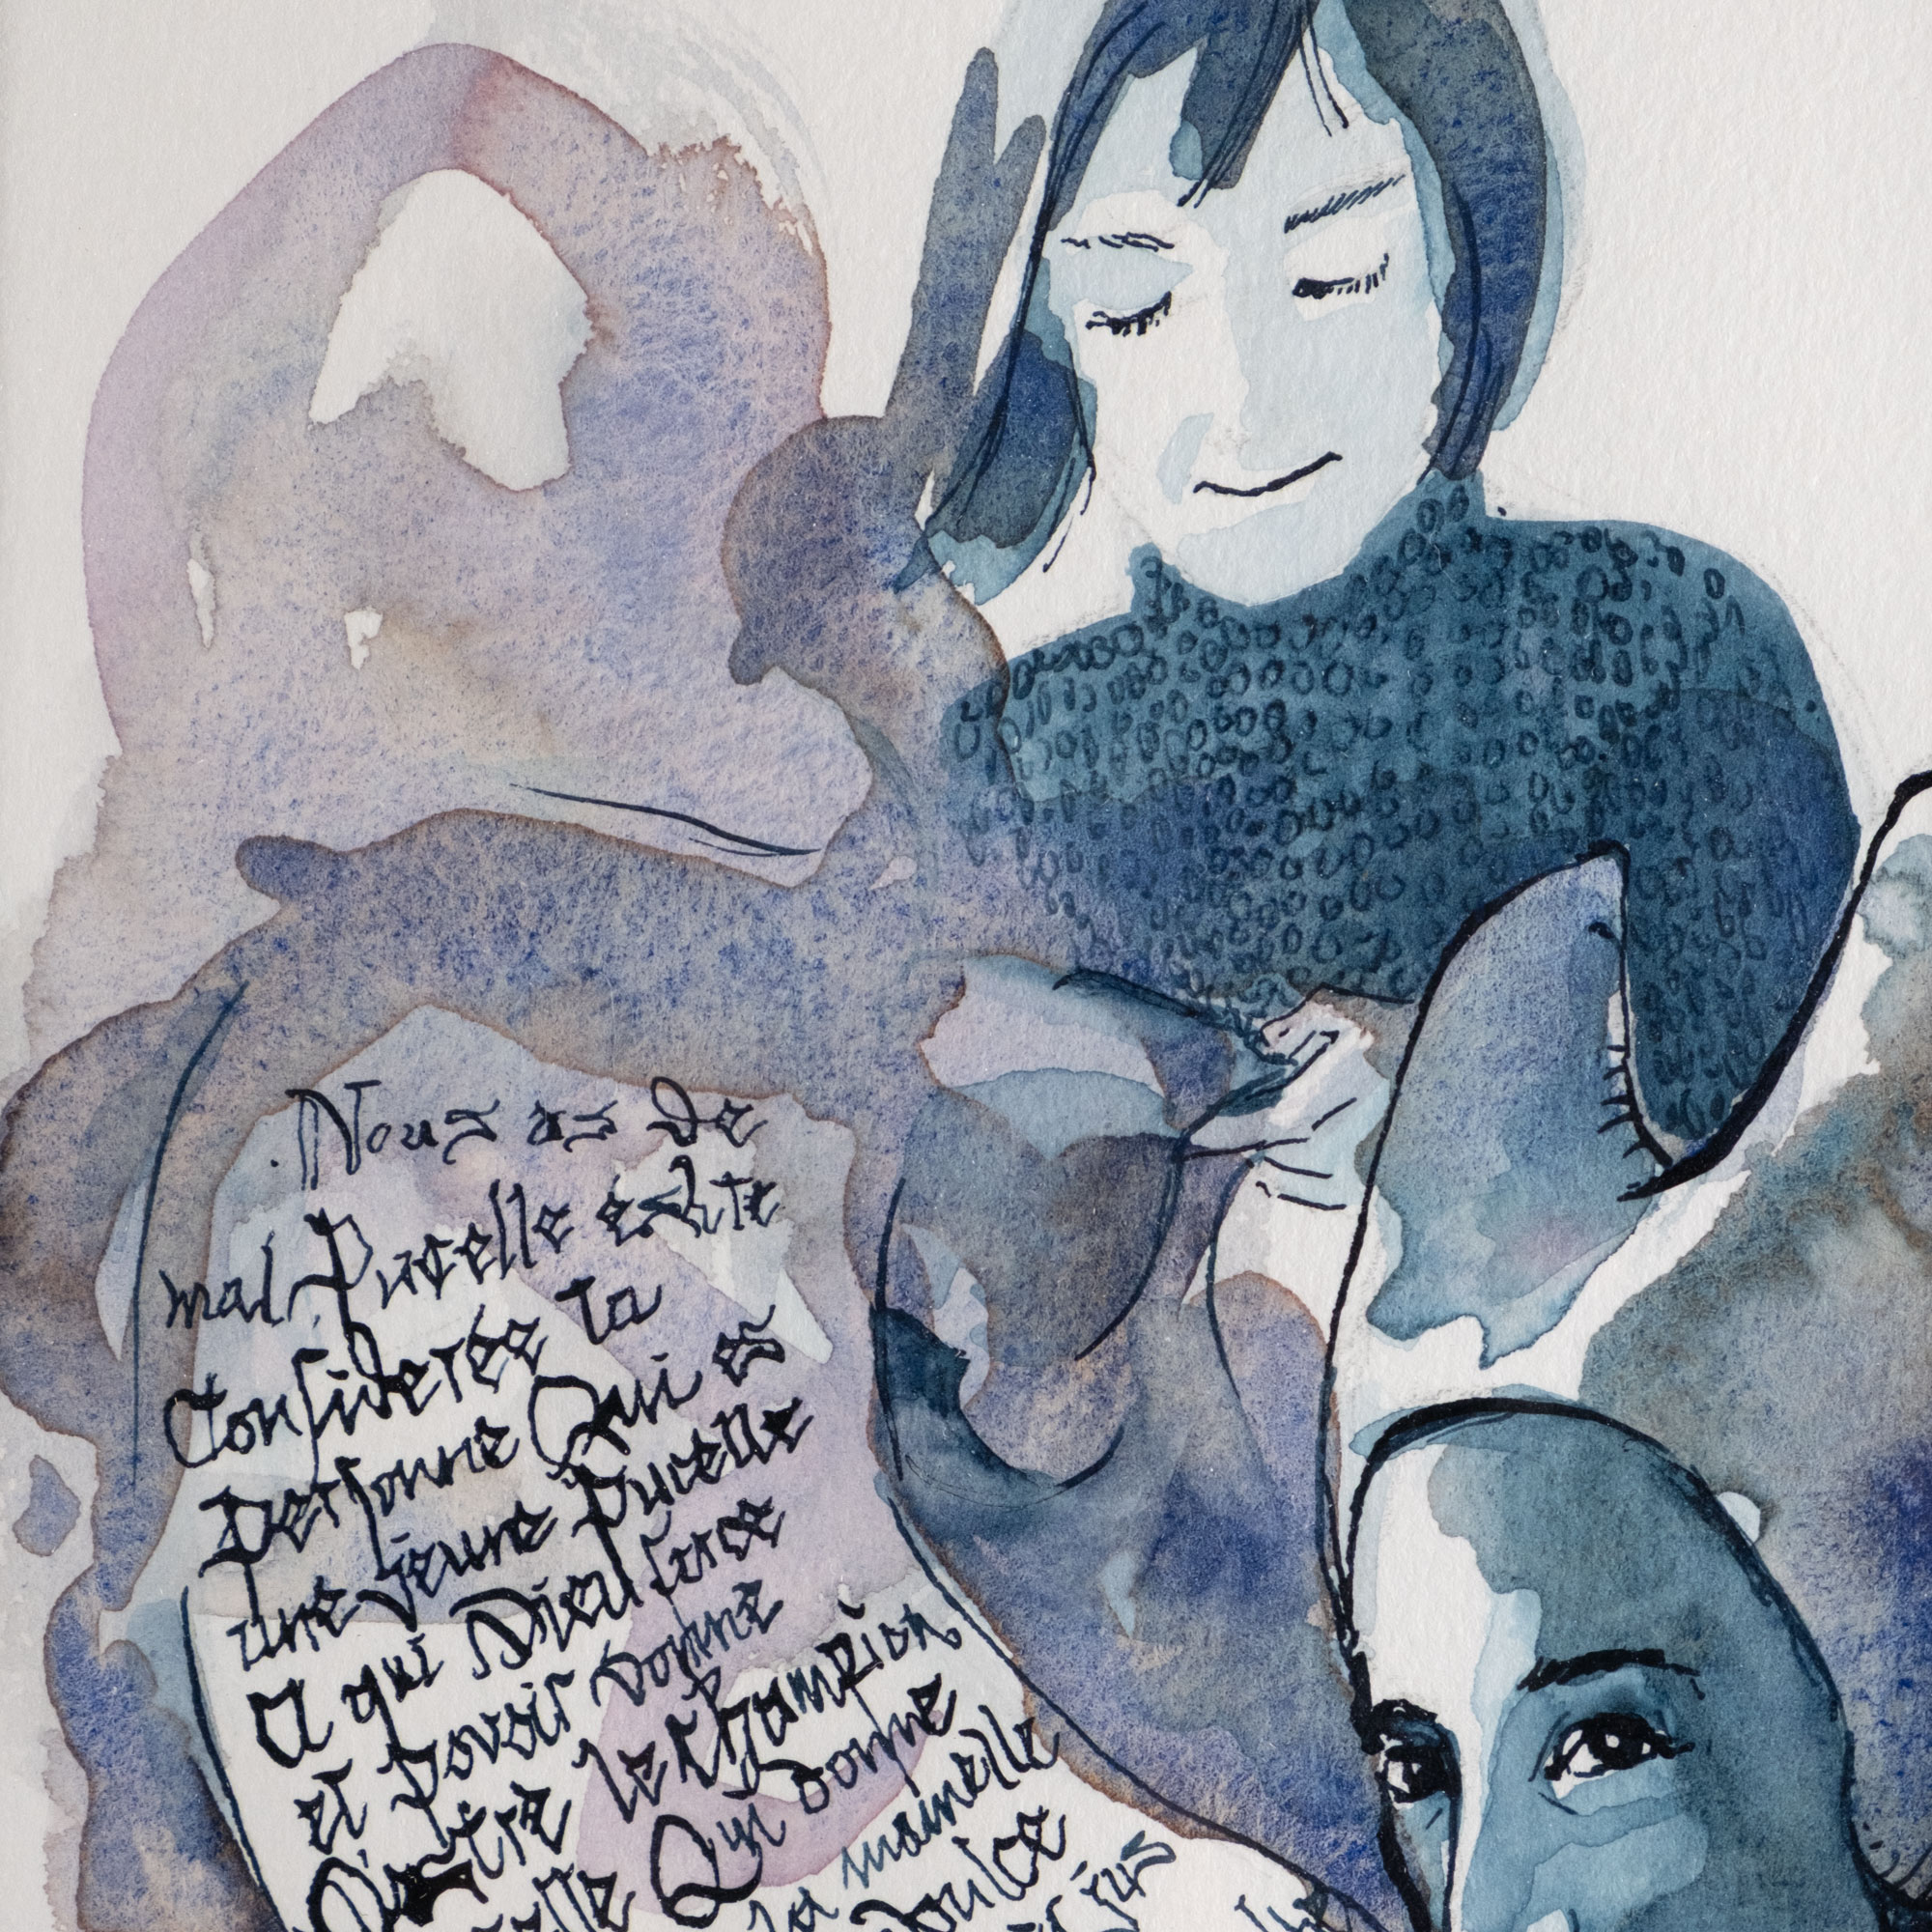 Nous as de
mal. Pucelle eslite
Considerée ta
Personne Qui es
une jeune Pucelle
A qui Dieu force
et povoir donne
D'estre le Champion
Qui donne
la mamelle
doulce
jus